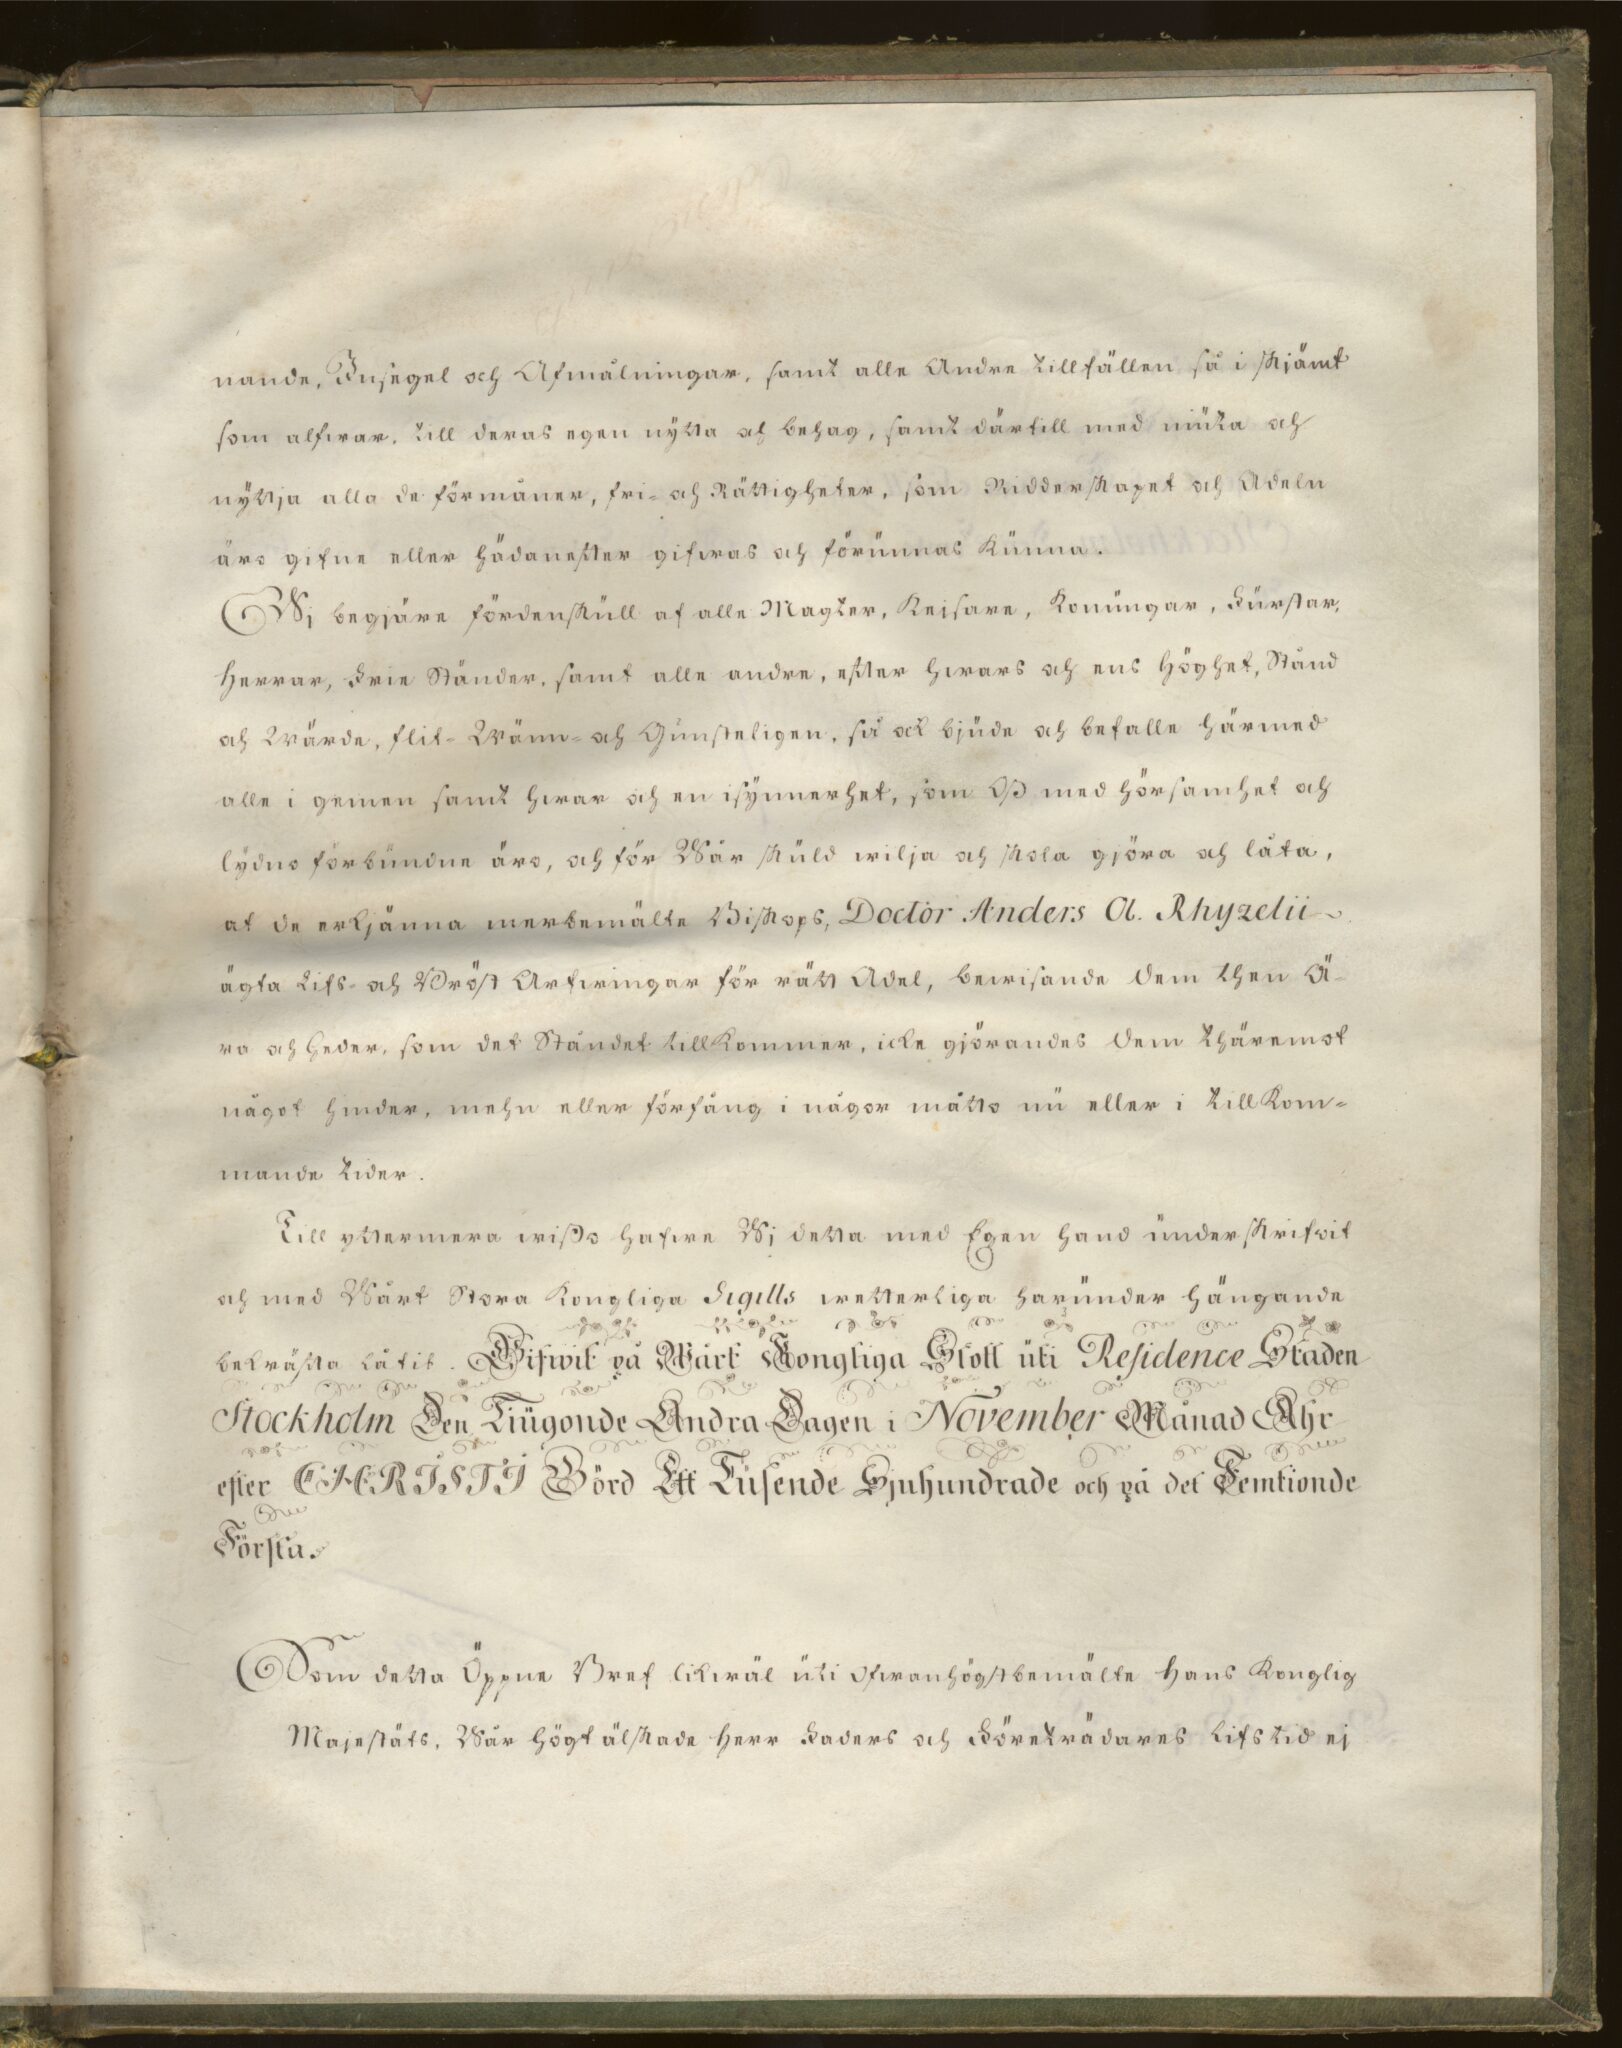 nande, Insegel och Afmålningar, samt alle Andre tillfällen så i skjämt
som alfwar, till deras egen nytta och behag, samt därtill med niuta och
nyttja alla de förmåner, fri- och Rättigheter, som Ridderskapet och Adeln
äro gifne eller hädanefter gifwas och förunnas Kunna.
Wj begjäre fördenskull af alle Magter, Keisare, Konungar, Furstar,
Herrar, Frie Ständer, samt alle andre, efter hwars och ens Höghet, Stånd
och Wärde, flit- Wänn- och Gunsteligen, så ock bjude och befalle härmed
alle i gemen samt hwar och en isynnerhet, som Oß med hörsamhet och
lydno förbundne äro, och för Wår skuld wilja och skola gjöra och låta,
at de erkjänna merbemälte Biskops, Doctor Anders Ol. Rhyzelii
ägta Lifs- och Bröst Arfwingar för rätt Adel, bewisande dem then Ä-
ra och heder, som det Ståndet tillkommer, icke gjörandes dem thäremot
något hinder, mehn eller förfång i någor måtto nu eller i tillkom-
mande tider.
Till yttermera wißo hafwe Wj detta med Egen hand underskrifwit
och med Wårt Stora Kongliga Sigills wetterliga harunder hängande
bekräfta låtit. Gifwit på Wårt Kongliga Slott uti Residence Staden
Stockholm Den Tiugonde Andra Dagen i November Månad Åhr
efter CHRISTI Börd Ett Tusende Sjuhundrade och på det Femtionde
Första.
Som detta Öppne Bref likwäl uti ofwanhögstbemälte Hans Konglig
Majestäts, Wår Högt älskade Herr Faders och Företrädares Lifstid ej